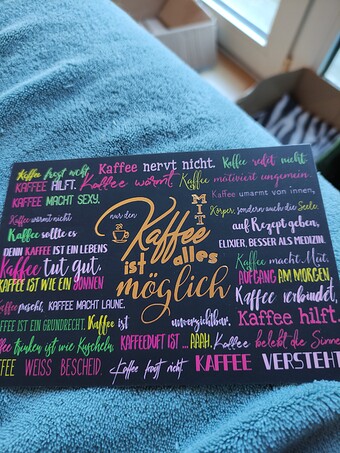 Kaffee fragt nicht. Kaffee nervt nicht. Kaffee redet nicht.
KAFFEE HILFT. Kaffee wärmt. Kaffee motiviert ungemein.
KAFFEE MACHT SEXY. Kaffee umarmt von innen,
Kaffee wärmt nicht nur den Körper, sondern auch die Seele.
Kaffee sollte es auf Rezept geben,
DENN KAFFEE IST EIN LEBENS ELIXIER, BESSER ALS MEDIZIN.
MIT
Kaffee
ist alles
möglich
Kaffee tut gut. Kaffee macht Mut.
KAFFEE IST WIE EIN SONNEN AUFGANG AM MORGEN,
KAFFEE MACHT LAUNE. Kaffee verbindet,
KAFFEE IST EIN GRUNDRECHT. Kaffee ist unverzichtbar. Kaffee hilft.
Kaffee trinken ist wie Kuscheln. KAFFEEDUFT IST ... AAAH. Kaffee belebt die Sinne
KAFFEE WEISS BESCHEID. Kaffee fragt nicht KAFFEE VERSTEHT